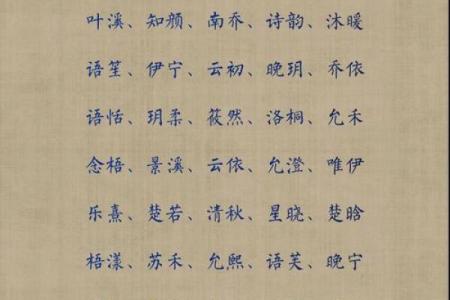 叶溪、知颜、南乔、诗韵、沐暖
语笙、伊宁、云初、晚玥、乔依
语恬、玥柔、筱然、洛桐、允禾
念梧、景溪、云依、允澄、唯伊
乐熹、楚若、清秋、星晓、楚晗
梧漾、苏禾、允熙、语芙、晚宁